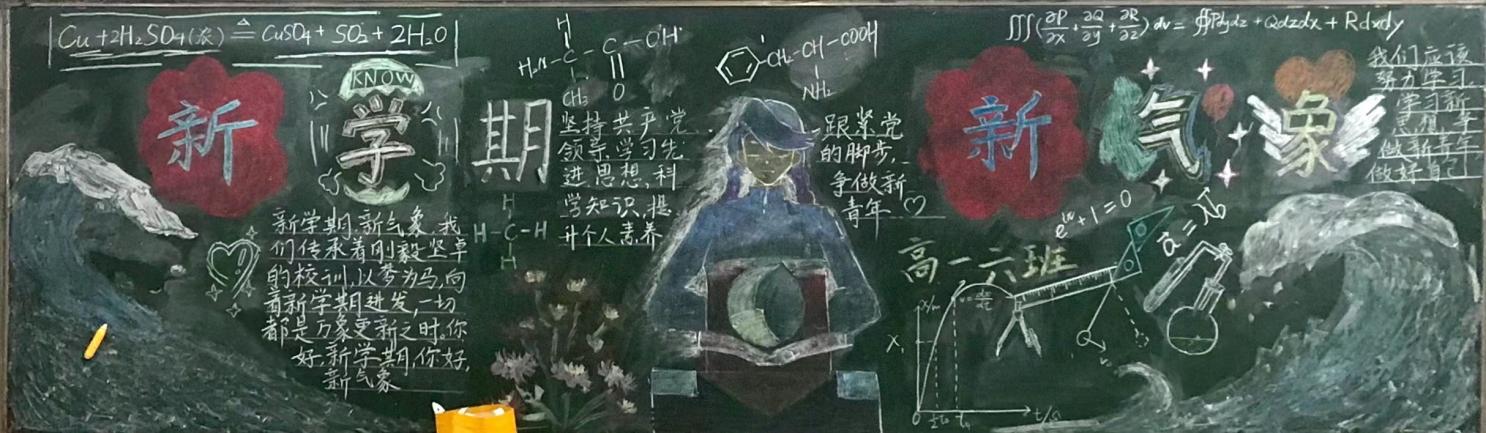 Cu+2H₂SO₄(浓) ≜ CuSO₄+SO₂+2H₂O
∭(∂P/∂x+∂Q/∂y+∂R/∂z)dv=∯Pdydz+Qdzdx+Rdxdy
新
KNOW
学
期
新
气
象
H
H₂N-C-C-OH
CH₃ O
CH₂-CH-COOH
NH₂
新学期,新气象,我
们传承着刚毅坚卓
的校训,以梦为马,向
着新学期进发,一切
都是万象更新之时。你
好,新学期,你好,
新气象
H
H-C-H
H
坚持共产党
领导,学习先
进思想,科
学知识,提
升个人素养
跟紧党
的脚步,
争做新
青年
我们应该
努力学习,
学习新
思想,争
做新青年,
做好自己
高一六班
x/m
X₁
0